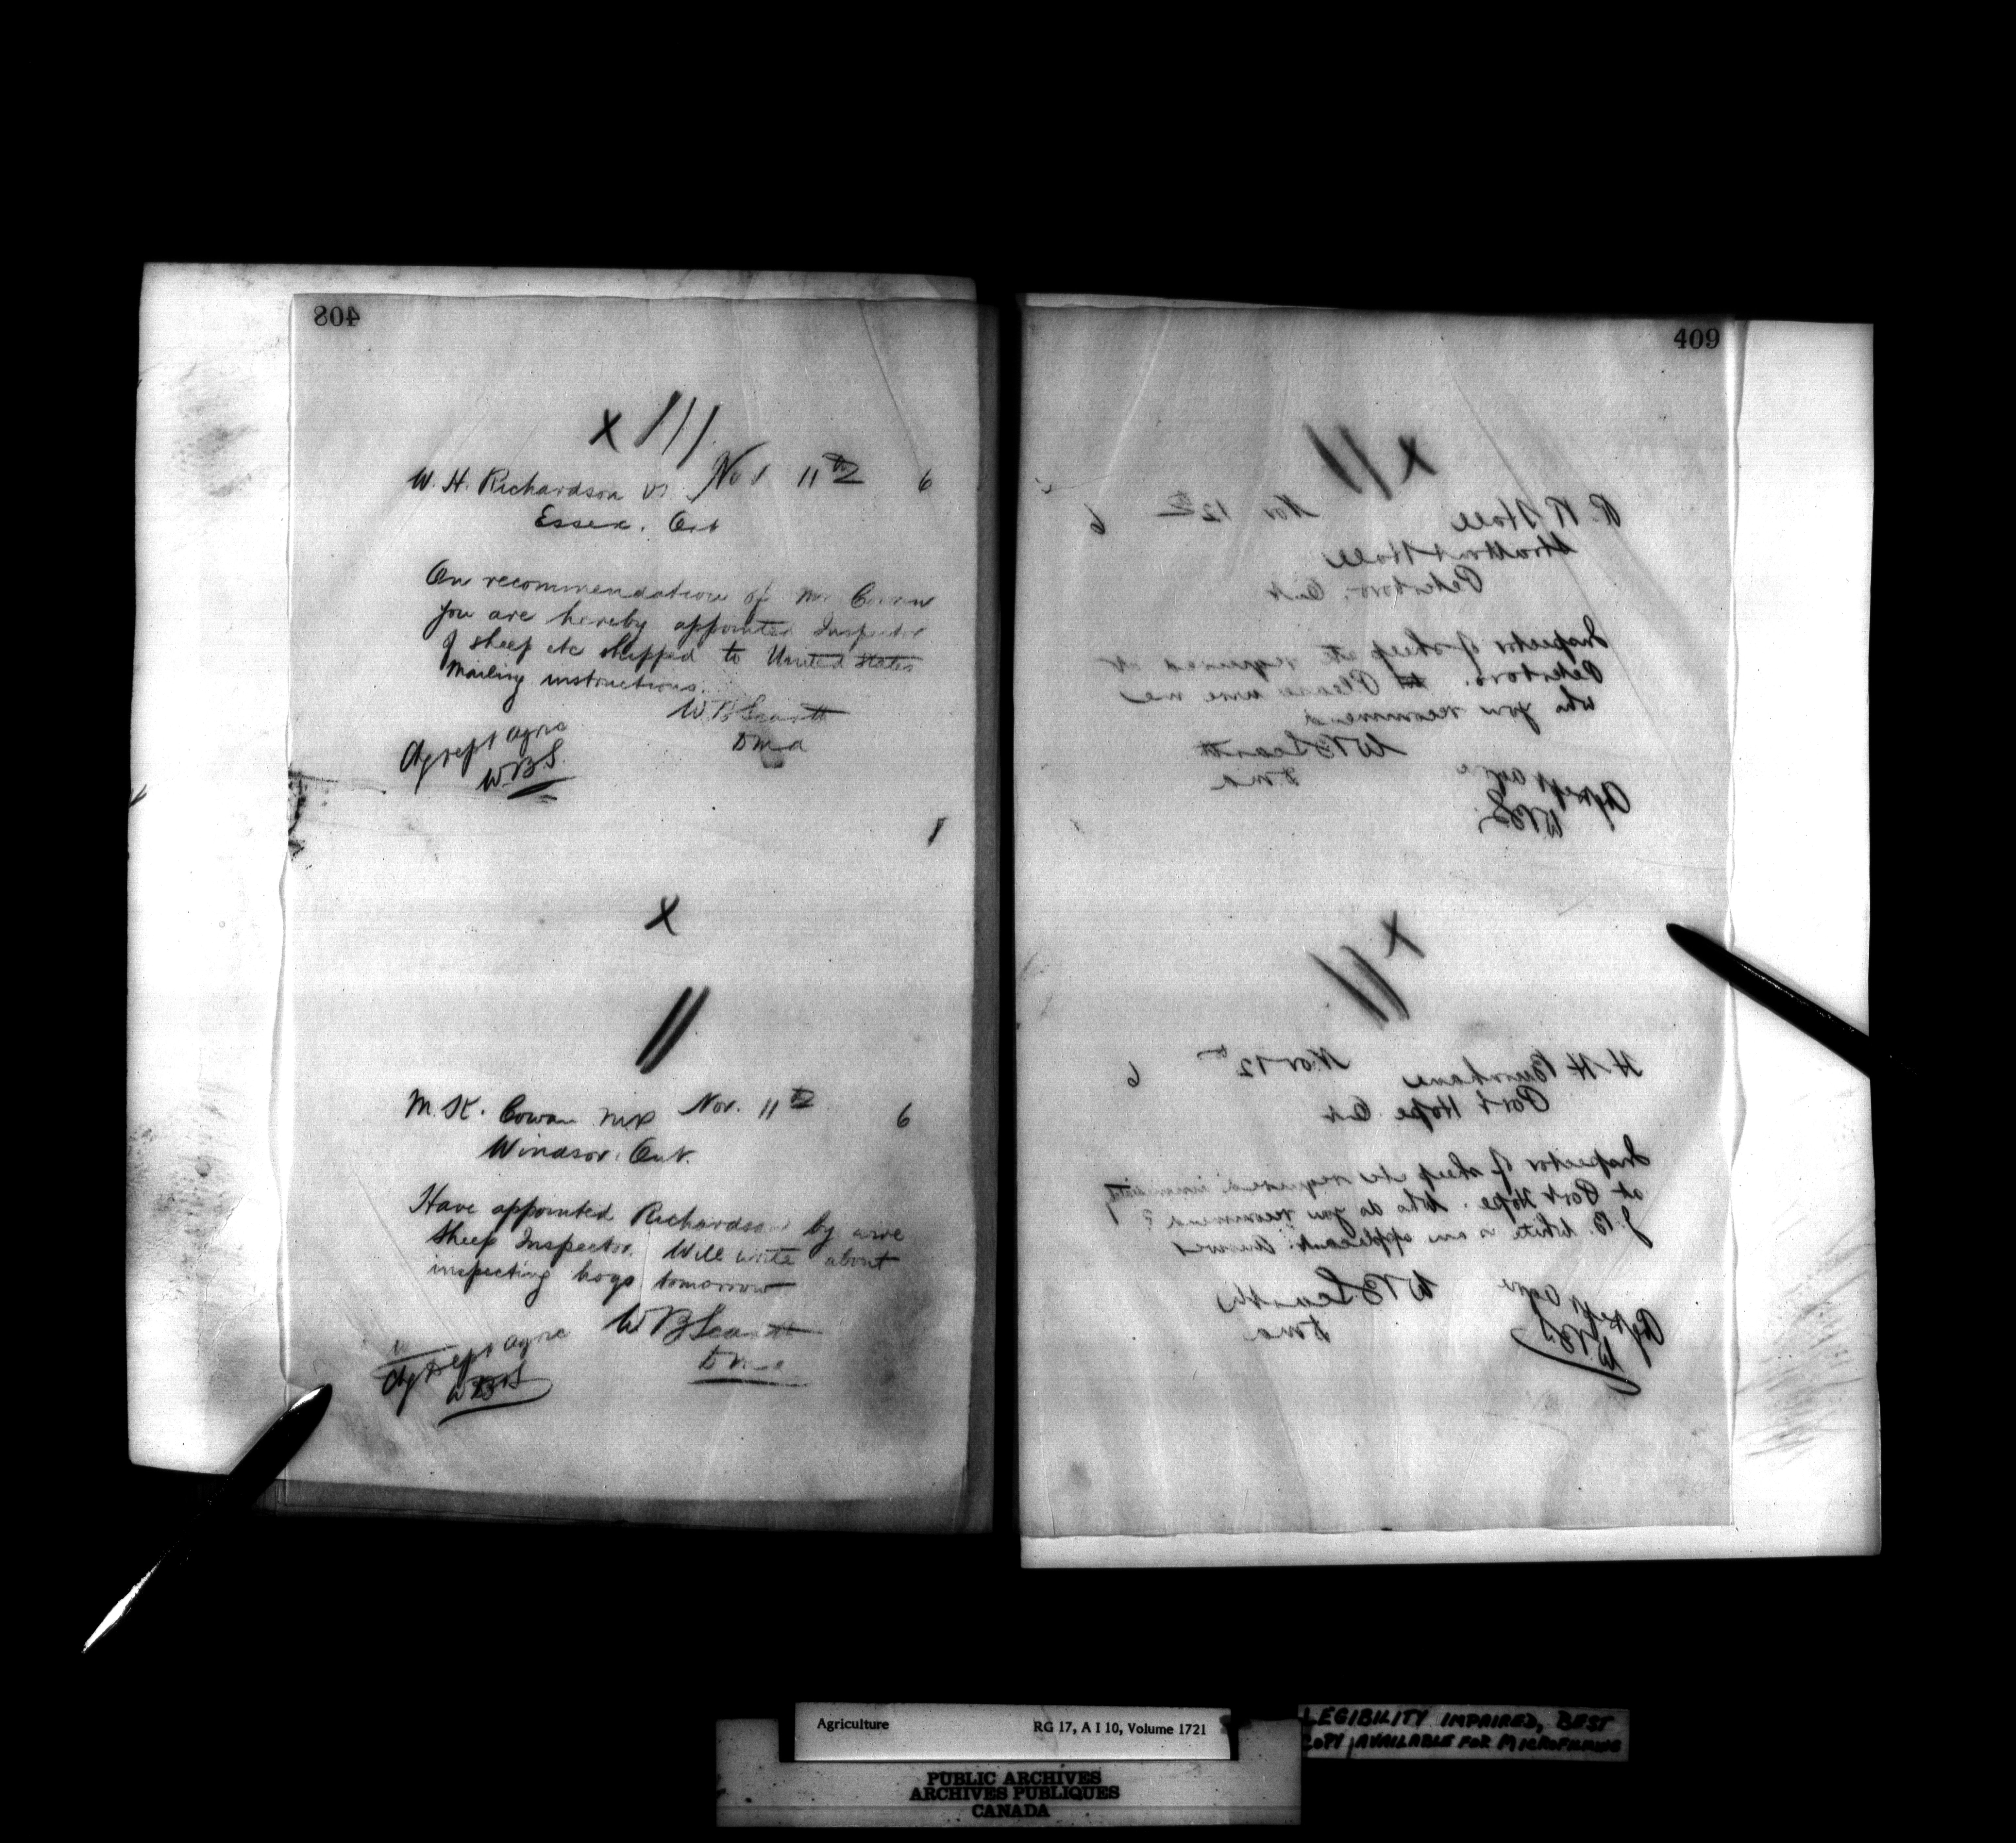 408
x ///
W. H. Richardson VS. Nov 11th 6
Essex. Ont
On recommendation of Mr Cowan
you are hereby appointed Inspector
of sheep etc shipped to United States
Mailing instructions.
W B Scarth
D M A
Chg Dept Agre
W.B.S.
x
//
M. K. Cowan MP Nov. 11th 6
Windsor. Ont.
Have appointed Richardson by wire
Sheep Inspector. Will write about
inspecting hogs tomorrow
W B Scarth
D M A
Chg Dept Agre
WBS
409
x //
R. R. Hall Nov 12th 6
Stratton & Hall
Peterboro. Ont
Inspector of sheep etc required at
Peterboro. Please wire me
who you recommend
W B Scarth
D M A
Chg Dept Agre
WBS
x ///
H. H. Burnham Nov 12th 6
Port Hope Ont
Inspector of sheep etc required immediately
at Port Hope. Who do you recommend?
J. B. White is an applicant. Answer
W B Scarth
D M A
Chg Dept Agre
WBS
Agriculture RG 17, A I 10, Volume 1721
LEGIBILITY IMPAIRED, BEST
COPY AVAILABLE FOR MICROFILMING
PUBLIC ARCHIVES
ARCHIVES PUBLIQUES
CANADA